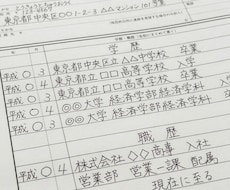 東京都中央区〇〇1-2-3 △△マンション101号室
学歴
平成 〇 3 東京都立中央区△△中学校 卒業
平成 〇 4 東京都立□□高等学校 入学
平成 〇 3 東京都立□□高等学校 卒業
平成 〇 4 ◎◎大学 経済学部経済学科
平成 〇 3 ◎◎大学 経済学部経済学科
職歴
平成 〇 4 株式会社◇◇商事 入社
営業部 営業一課 配属
現在に至る